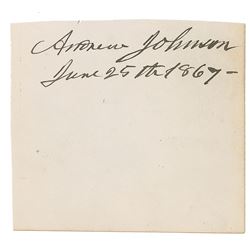 Andrew Johnson
June 25th 1867-